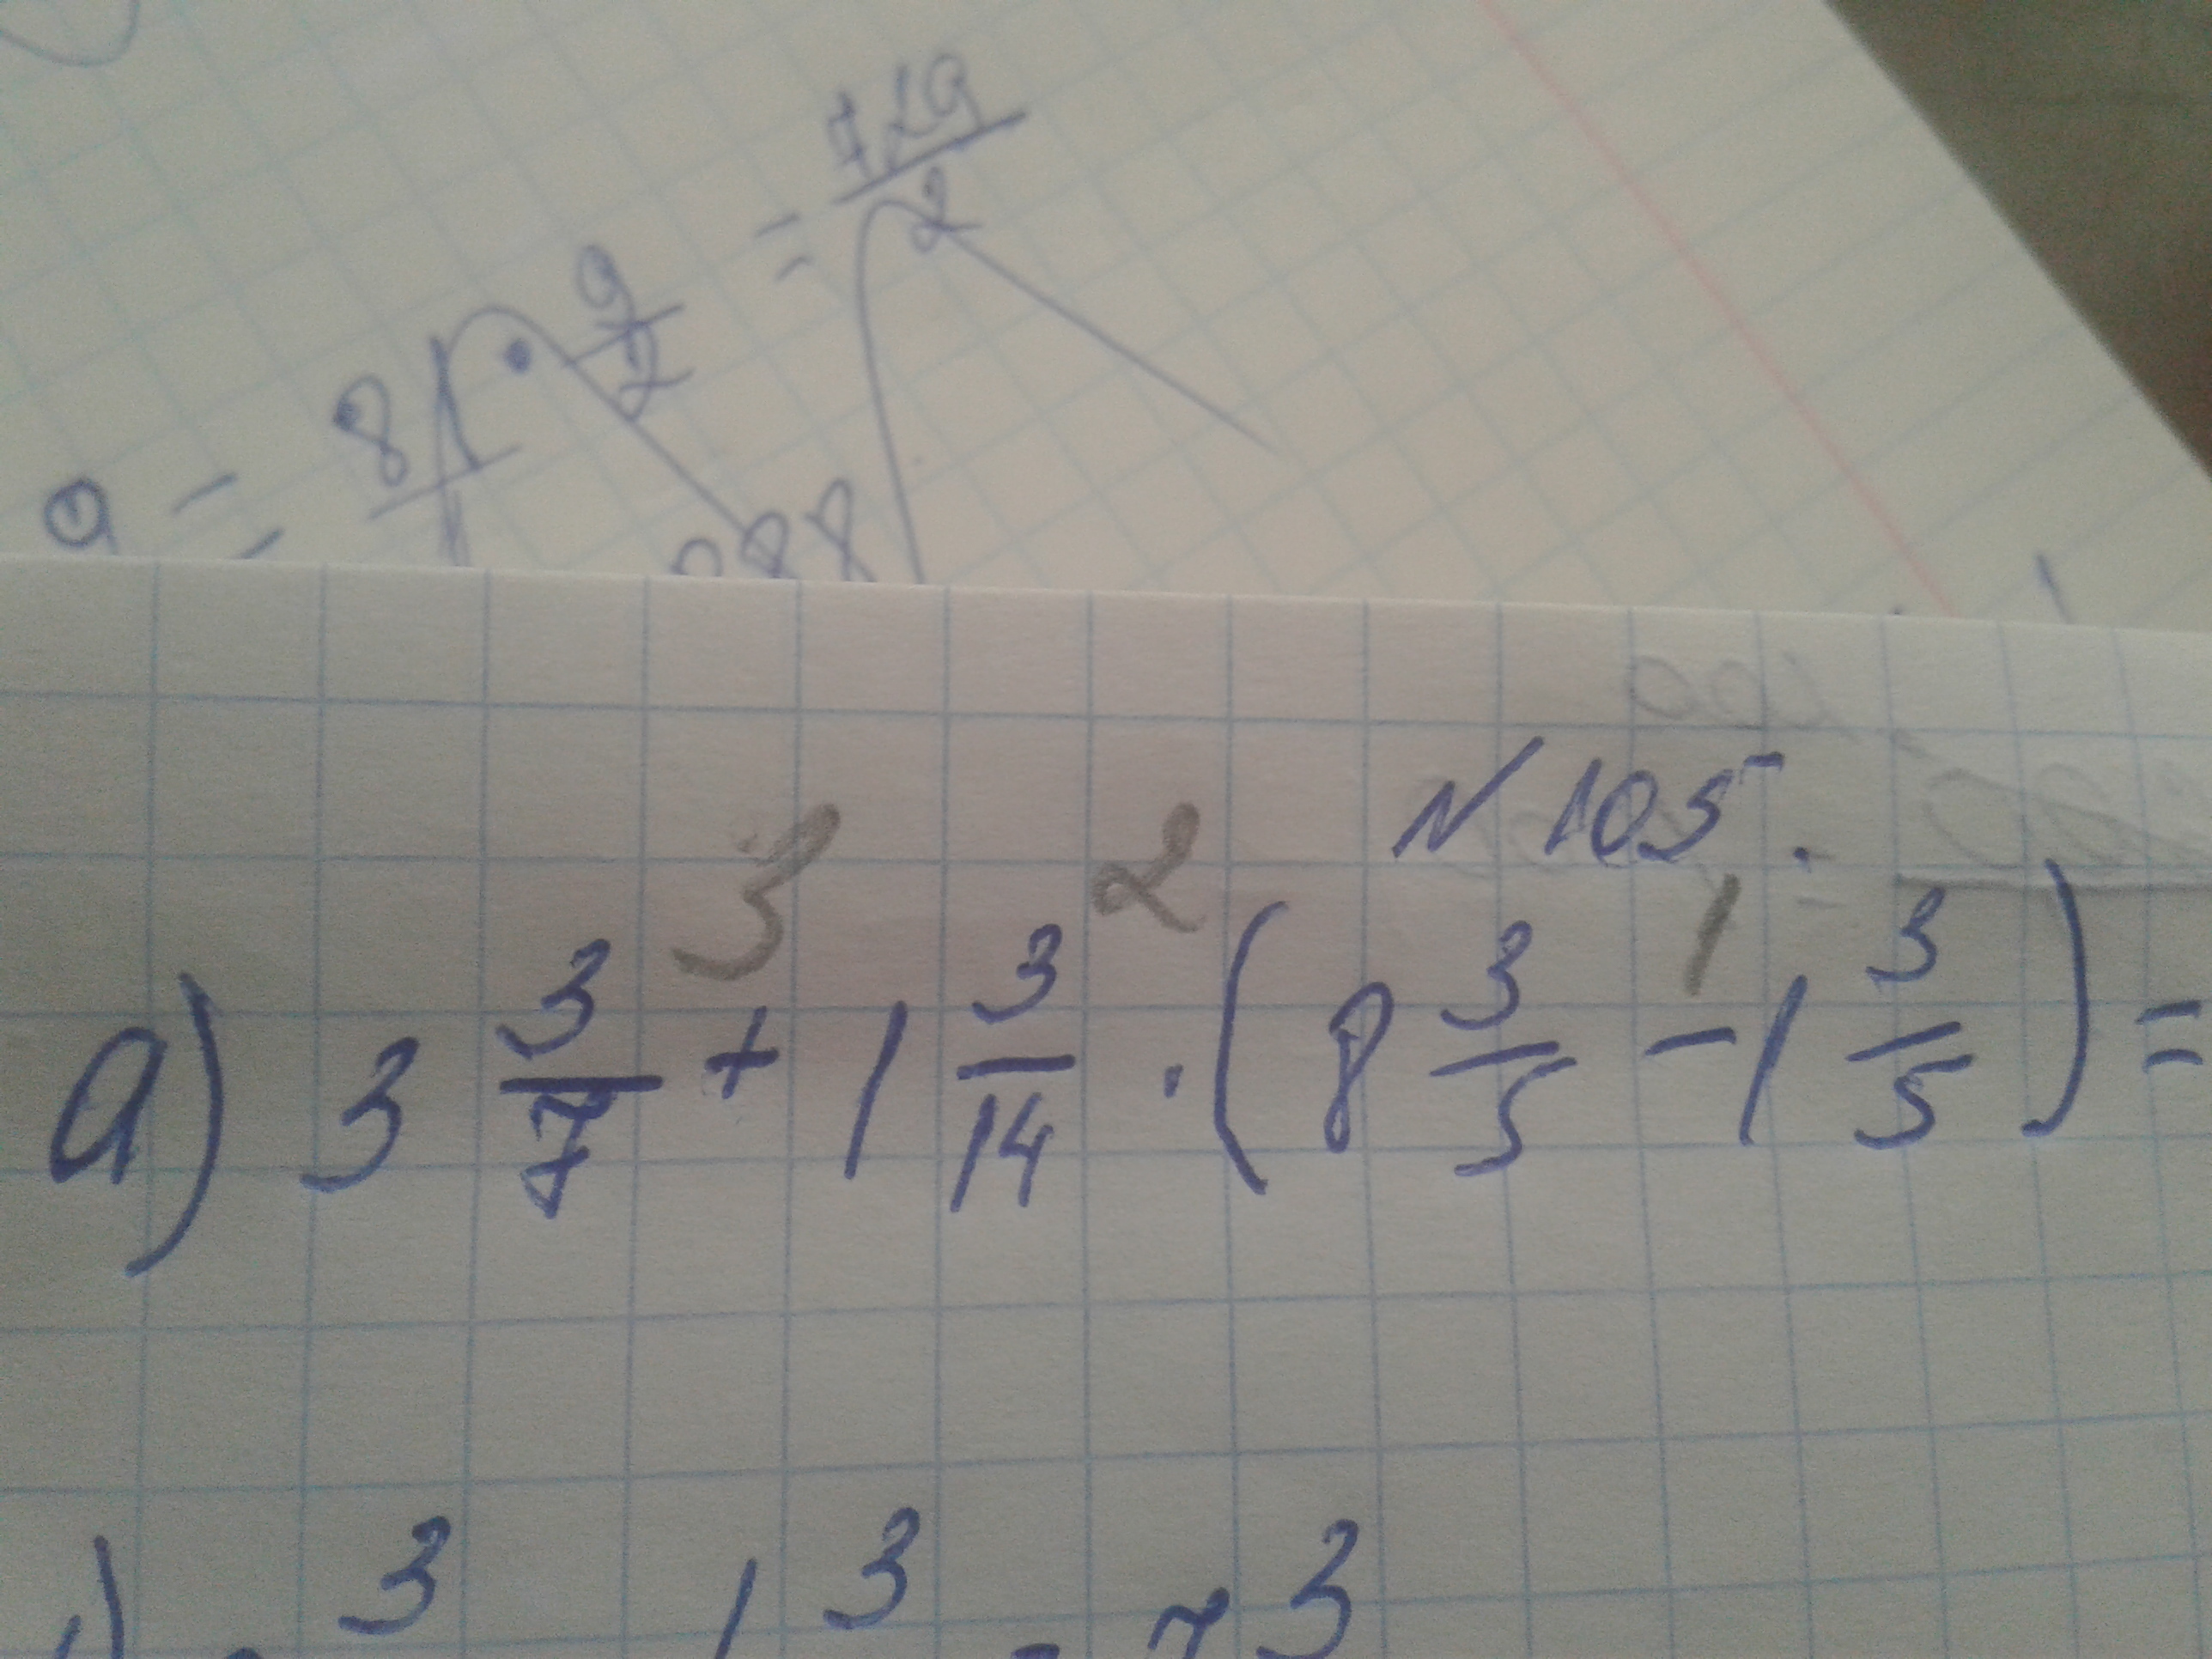 9 = 81 · 9/2 = 729/2
88
N 105.
3 2 1
а) 3 3/7 + 1 3/14 · (8 3/5 - 1 3/5) =
3 1 3 7 3